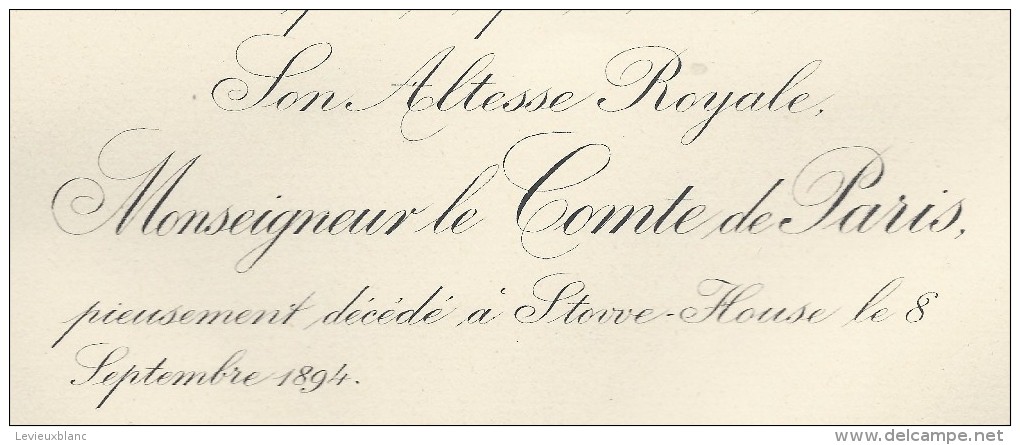 Son Altesse Royale,
Monseigneur le Comte de Paris,
pieusement décédé à Stowe-House le 8
Septembre 1894.
Levieuxblanc
www.delcampe.net